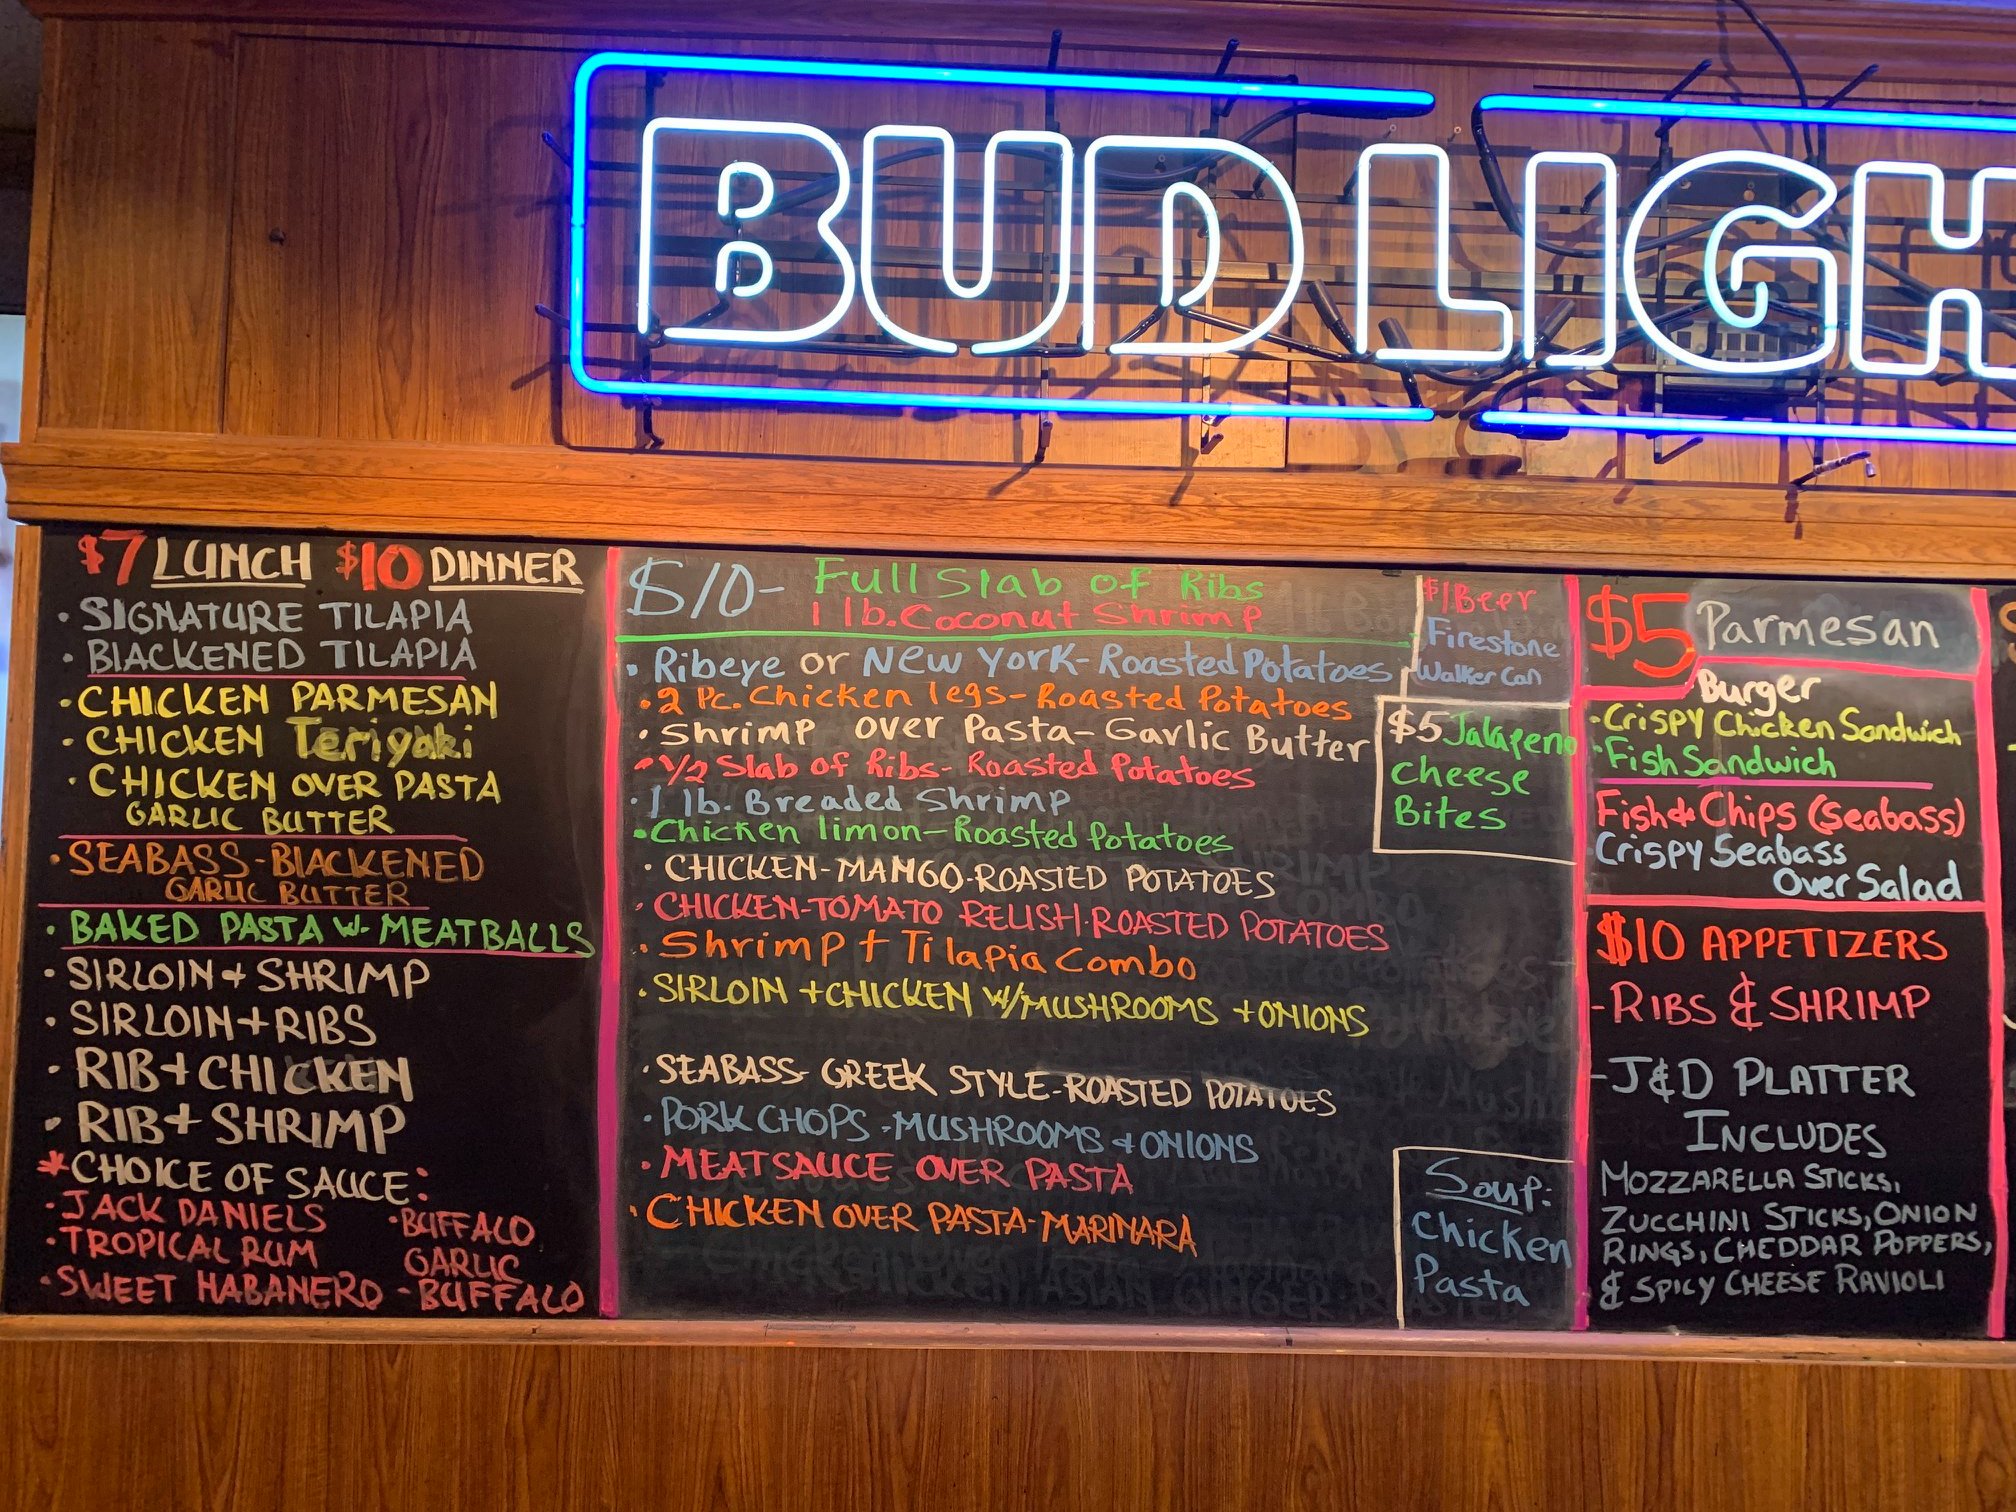 BUD LIGH
$7 LUNCH $10 DINNER
• SIGNATURE TILAPIA
• BLACKENED TILAPIA
• CHICKEN PARMESAN
• CHICKEN Teriyaki
• CHICKEN OVER PASTA
GARLIC BUTTER
• SEABASS-BLACKENED
GARLIC BUTTER
• BAKED PASTA W- MEATBALLS
• SIRLOIN + SHRIMP
• SIRLOIN + RIBS
• RIB + CHICKEN
• RIB + SHRIMP
*CHOICE OF SAUCE:
• JACK DANIELS
• TROPICAL RUM
• SWEET HABANERO
• BUFFALO
GARLIC
- BUFFALO
$10- Full Slab of Ribs
1 lb. Coconut Shrimp
• Ribeye or New York-Roasted Potatoes
• 2 Pc. Chicken legs-Roasted Potatoes
• Shrimp over Pasta-Garlic Butter
• 1/2 Slab of Ribs-Roasted Potatoes
• 1 lb. Breaded Shrimp
• Chicken limon-Roasted Potatoes
• CHICKEN-MANGO-ROASTED POTATOES
• CHICKEN-TOMATO RELISH-ROASTED POTATOES
• Shrimp + Tilapia Combo
• SIRLOIN + CHICKEN W/MUSHROOMS + ONIONS
• SEABASS-GREEK STYLE-ROASTED POTATOES
• PORK CHOPS-MUSHROOMS + ONIONS
• MEATSAUCE OVER PASTA
• CHICKEN OVER PASTA-MARINARA
$1 Beer
Firestone
Walker Can
$5 Jalapeno
Cheese
Bites
Soup:
Chicken
Pasta
$5 Parmesan
Burger
• Crispy Chicken Sandwich
• Fish Sandwich
Fish & Chips (Seabass)
Crispy Seabass
Over Salad
$10 APPETIZERS
- RIBS & SHRIMP
- J&D PLATTER
INCLUDES
MOZZARELLA STICKS,
ZUCCHINI STICKS, ONION
RINGS, CHEDDAR POPPERS,
& SPICY CHEESE RAVIOLI